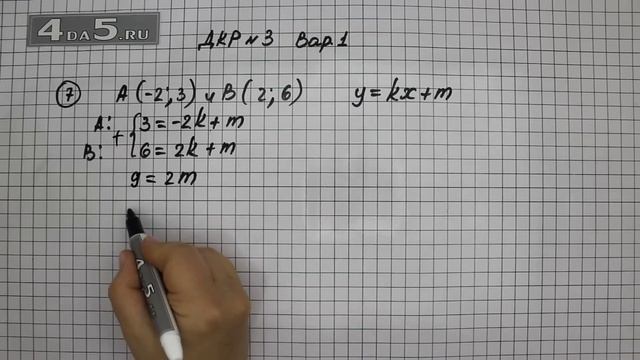 4DA5.RU
ДКР №3 Вар.1
7 A(-2;3) и B(2;6) y=kx+m
A: + { 3=-2k+m
B: 6=2k+m
9=2m
4DA5